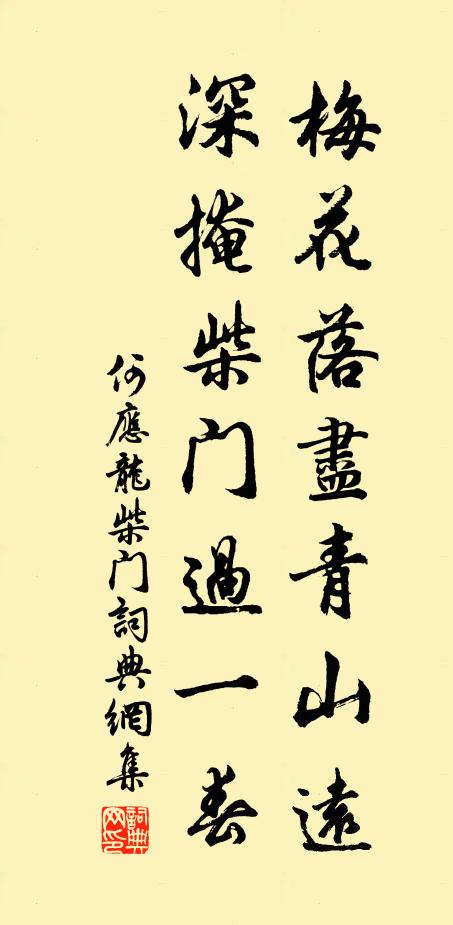 梅花落盡青山遠
深掩柴门過一春
何應龍柴门詞典網集
詞典
网印